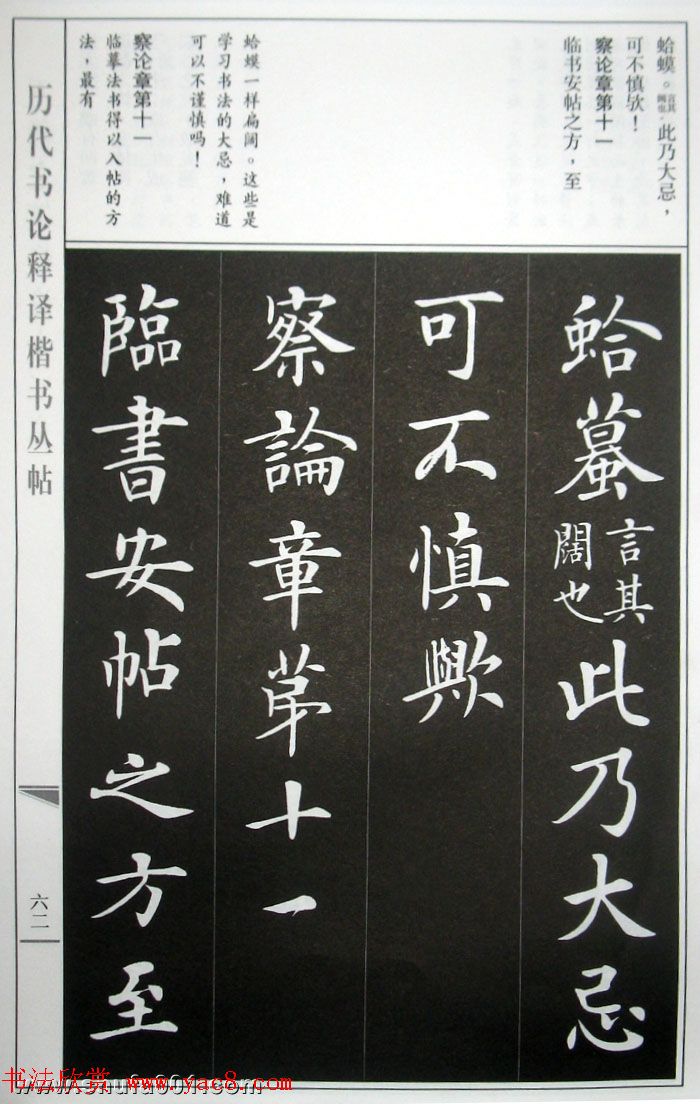 蛤蟆。言其阔也。此乃大忌，
可不慎欤！
察论章第十一
临书安帖之方，至
蛤蟆一样扁阔。这些是
学习书法的大忌，难道
可以不谨慎吗！
察论章第十一
临摹法书得以入帖的方
法，最有
蛤蟇言其闊也此乃大忌
可不慎歟
察論章苐十一
臨書安帖之方至
历代书论释译楷书丛帖
六二
书法欣赏 www.yac8.com